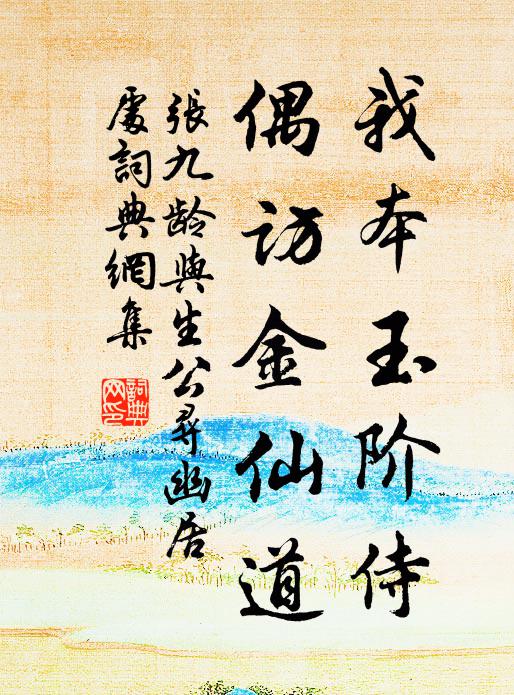 我本玉阶侍
偶访金仙道
張九龄與生公尋幽居
處詞典網集
詞典
网印